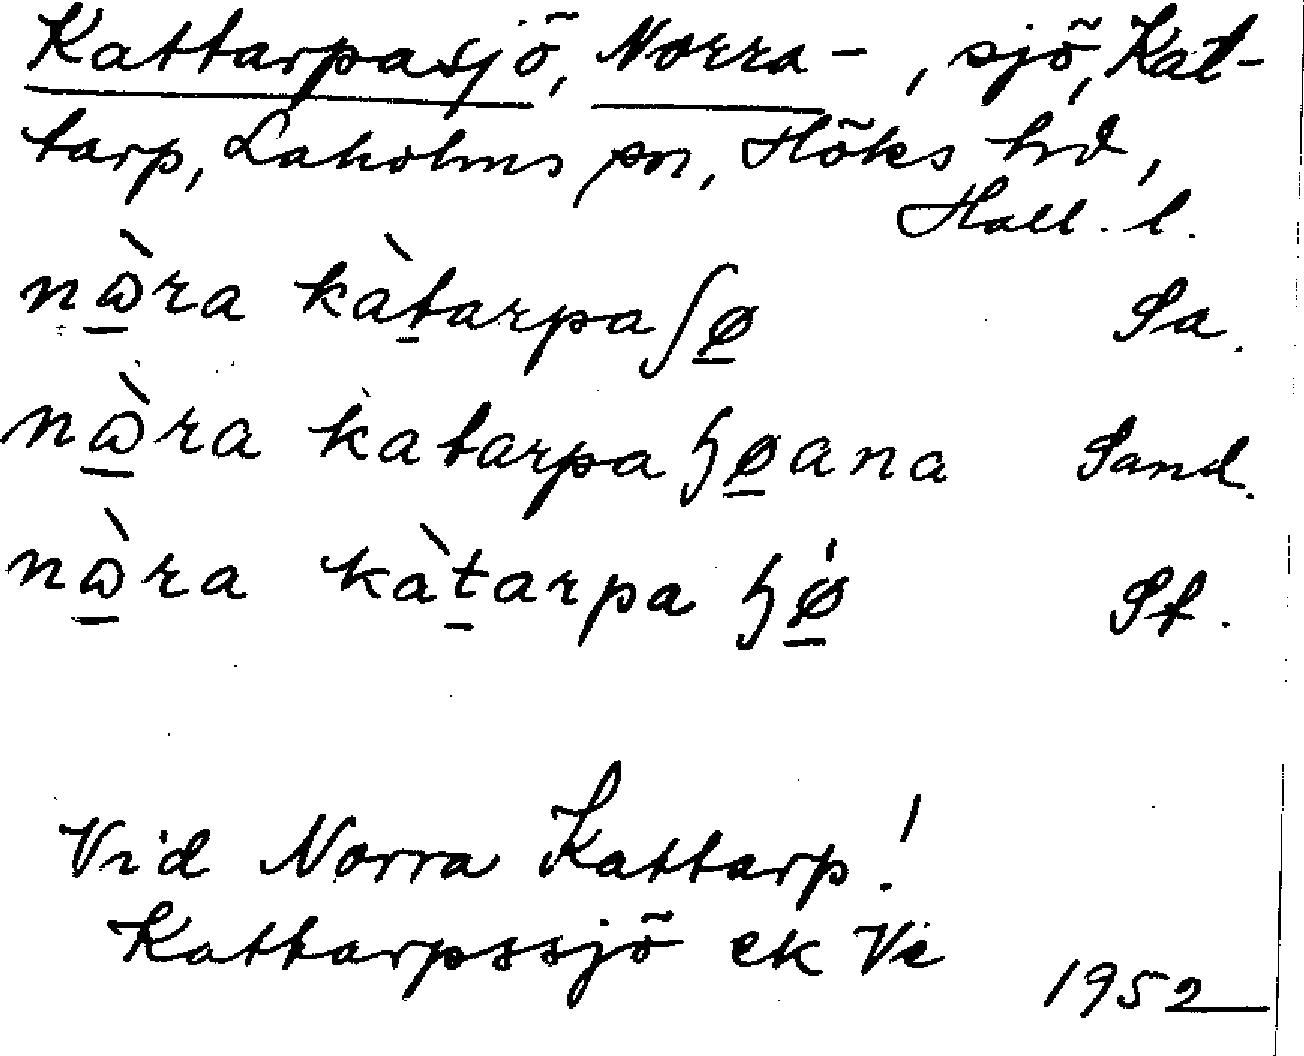 Kattarpasjö, Norra –, sjö, Kat-
tarp, Laholms sn, Höks hd,
Hall. l.
nὼ̱ra kàṯarpaʃø̱ Sa.
nὼ̱ra kàtarpa ɧø̱ana Sand.
nὼ̱ra kàṯarpa ɧǿ̱ St.
Vid Norra Kattarp!
Kattarpssjö ek Ve
1952